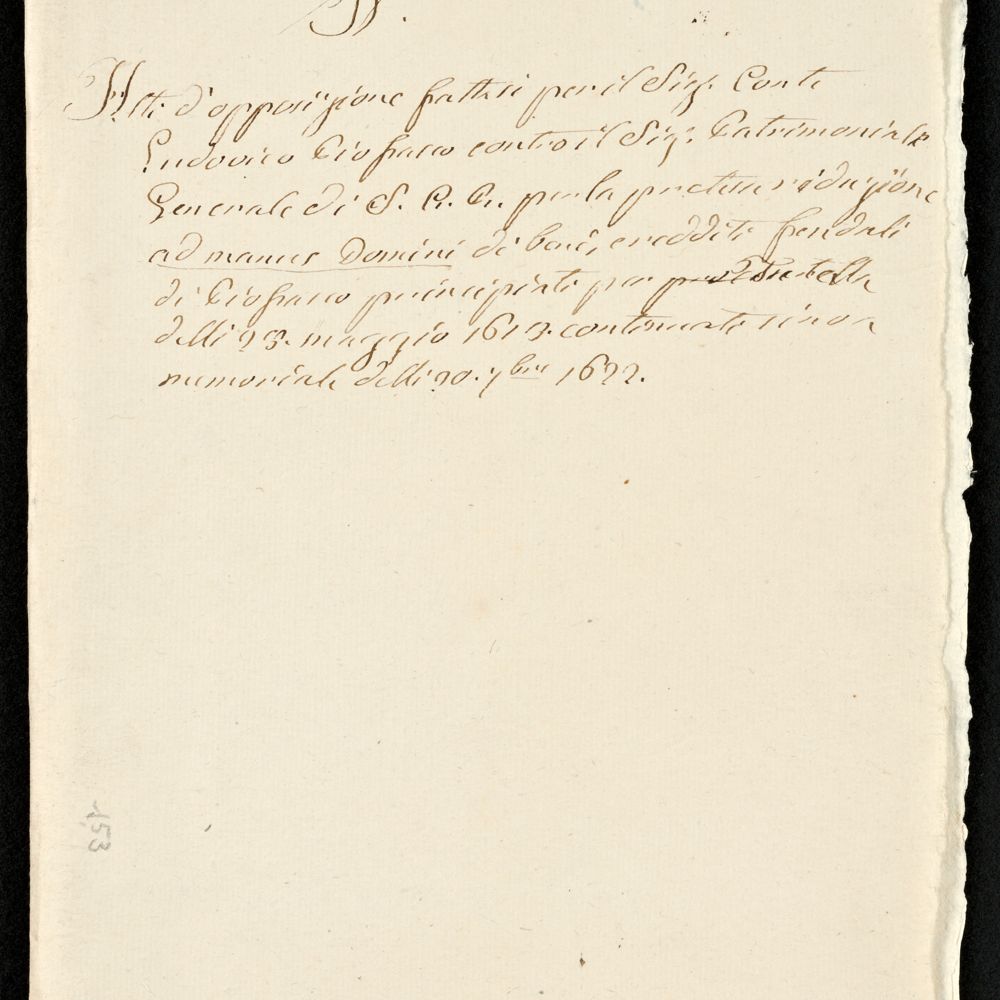 Atti d'opposizione fattisi per il Sig.r Conte
Ludovico Piossasco contro il Sig.r Patrimoniale
Generale di S. A. per la pretesa riduzione
ad manus Domini di beni, e redditi feudali
di Piossasco principiati per Testa
delli 23. maggio 1619. continuati sino a
memoriale delli 20. 7bre 1622.
153